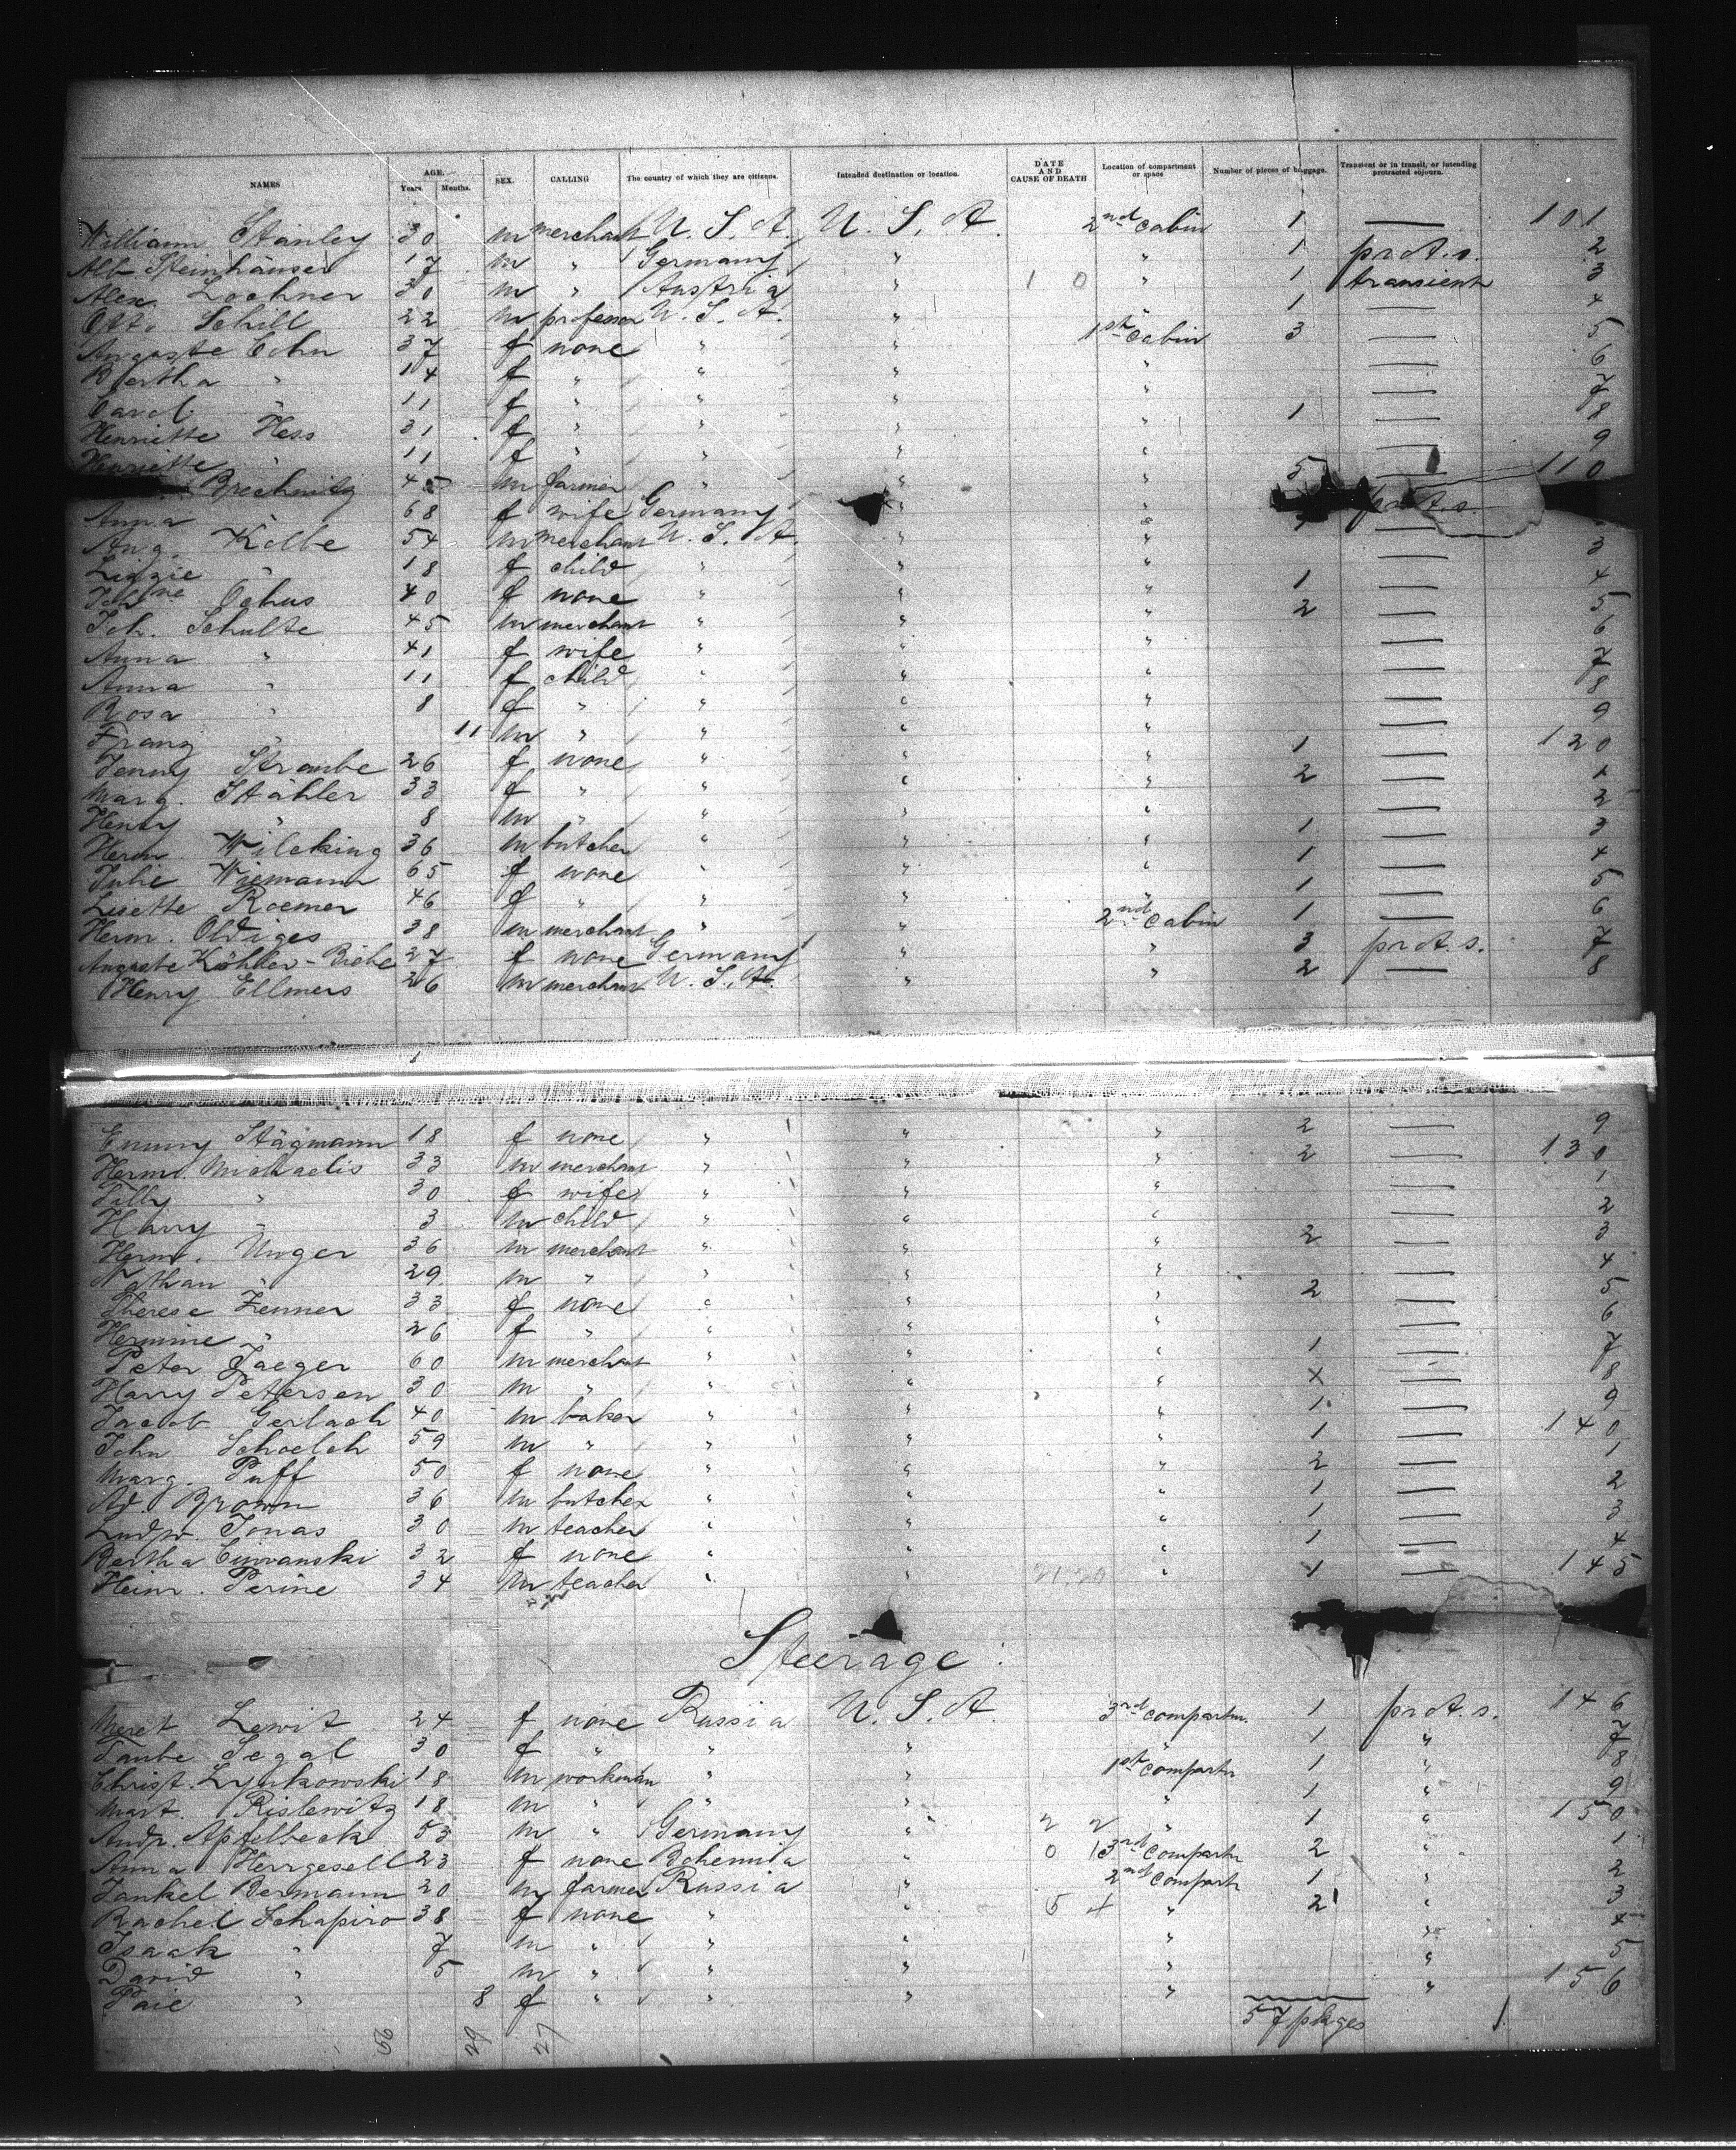 NAMES AGE. Years. Months. SEX. CALLING The country of which they are citizens. Intended destination or location. DATE AND CAUSE OF DEATH Location of compartment or space Number of pieces of baggage. Transient or in transit, or intending protracted sojourn.
William Stanley 30 m merchant U. S. A. U. S. A. 2nd cabin 1 — 101
Alb. Steinhäuser 17 m " Germany " " 1 prot. s. 2
Alex. Lochner 30 m " Austria " 1 0 " 1 transient 3
Otto Schill 22 m professor U. S. A. " " 1 — 4
Auguste Cohn 37 f none " " 1st cabin 3 — 5
Bertha " 14 f " " " " — 6
Carol " 11 f " " " " — 7
Henriette Hess 31 f " " " " 1 — 8
Henriette " 11 f " " " " — 9
Brechnitz 45 m farmer " " " 5 — 110
Anna " 68 f wife Germany " " prot. s.
Aug. Kolbe 54 m merchant U. S. A. " " —
Lizzie " 18 f child " " " 3
Johne Ochus 40 f none " " " 1 — 4
Joh. Schulte 45 m merchant " " " 2 — 5
Anna " 41 f wife " " " — 6
Anna " 11 f child " " " — 7
Rosa " 8 f " " " " — 8
Franz " 11 m " " " " — 9
Jenny Straube 26 f none " " " 1 — 120
Marg. Stähler 33 f " " " " 2 — 1
Henry " 8 m " " " " — 2
Herm. Wilcking 36 m butcher " " " 1 — 3
Julie Wiemann 65 f none " " " 1 — 4
Lisette Roemer 46 f " " " " 1 — 5
Herm. Oldiges 38 m merchant " " 2nd cabin 1 — 6
Auguste Köhler-Biehe 27 f none Germany " " 3 prot. s. 7
Henry Ellmers 26 m merchant U. S. A. " " 2 — 8
Emmy Stägmann 18 f none " " " 2 — 9
Herm. Michaelis 33 m merchant " " " 2 — 130
Lilly " 30 f wife " " " — 1
Harry " 3 m child " " " — 2
Herm. Unger 36 m merchant " " " 2 — 3
Nathan " 29 m " " " " — 4
Therese Zenner 33 f none " " " 2 — 5
Hermine " 26 f " " " " — 6
Peter Jaeger 60 m merchant " " " 1 — 7
Harry Petersen 30 m " " " " x — 8
Jacob Gerlach 40 m baker " " " 1 — 9
John Schoelch 59 m " " " " 1 — 140
Marg. Puff 50 f none " " " 2 — 1
Ad. Brown 36 m butcher " " " 1 — 2
Ludw. Jonas 30 m teacher " " " 1 — 3
Bertha 32 f none " " " 1 — 4
Heinr. Perine 34 m teacher " " " 1 — 145
Steerage.
Meret Lewit 24 f none Russia U. S. A. 3rd compartm. 1 prot. s. 146
Taube Segal 30 f " " " " 1 " 7
Christ. Lynkowski 18 m workman " " 1st compartm 1 " 8
Mart. Rislewitz 18 m " " " " 1 " 9
Andr. Apfelbeck 53 m " Germany " 2 2 " 1 " 150
Anna Herrgesell 23 f none Bohemia " 0 1 3rd compartm 2 " 1
Jankel Bermann 20 m farmer Russia " 2nd compartm 1 " 2
Rachel Schapiro 38 f none " " 5 4 " 2 " 3
Isaak " 7 m " " " " " 4
David " 5 m " " " " " 5
Paie " 8 f " " " " " 156
56 29 27 57 pkges 1